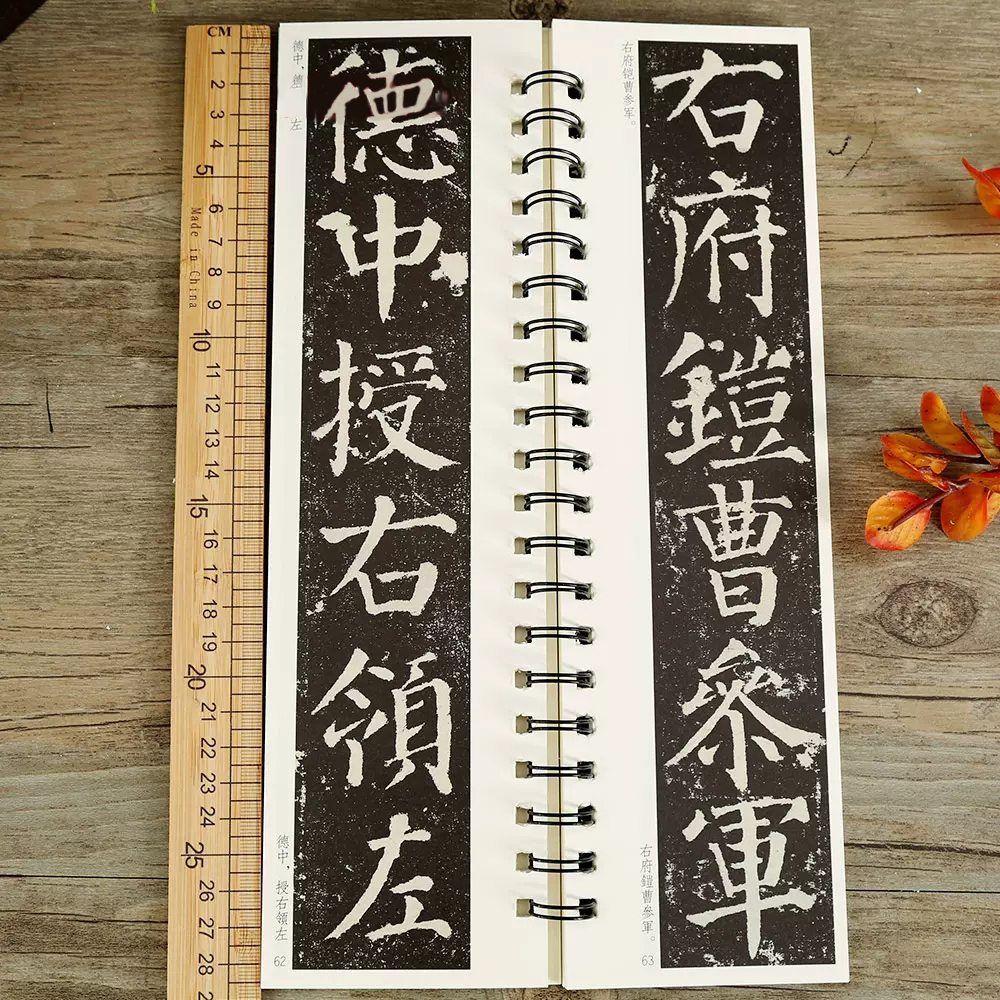 CM
1
2
3
4
5
6
7
8
9
10
11
12
13
14
15
16
17
18
19
20
21
22
23
24
25
26
27
28
Made in China
德中授右領左
德中，授右領左
62
右府鎧曹參軍
右府铠曹参军。
右府鎧曹參軍。
63